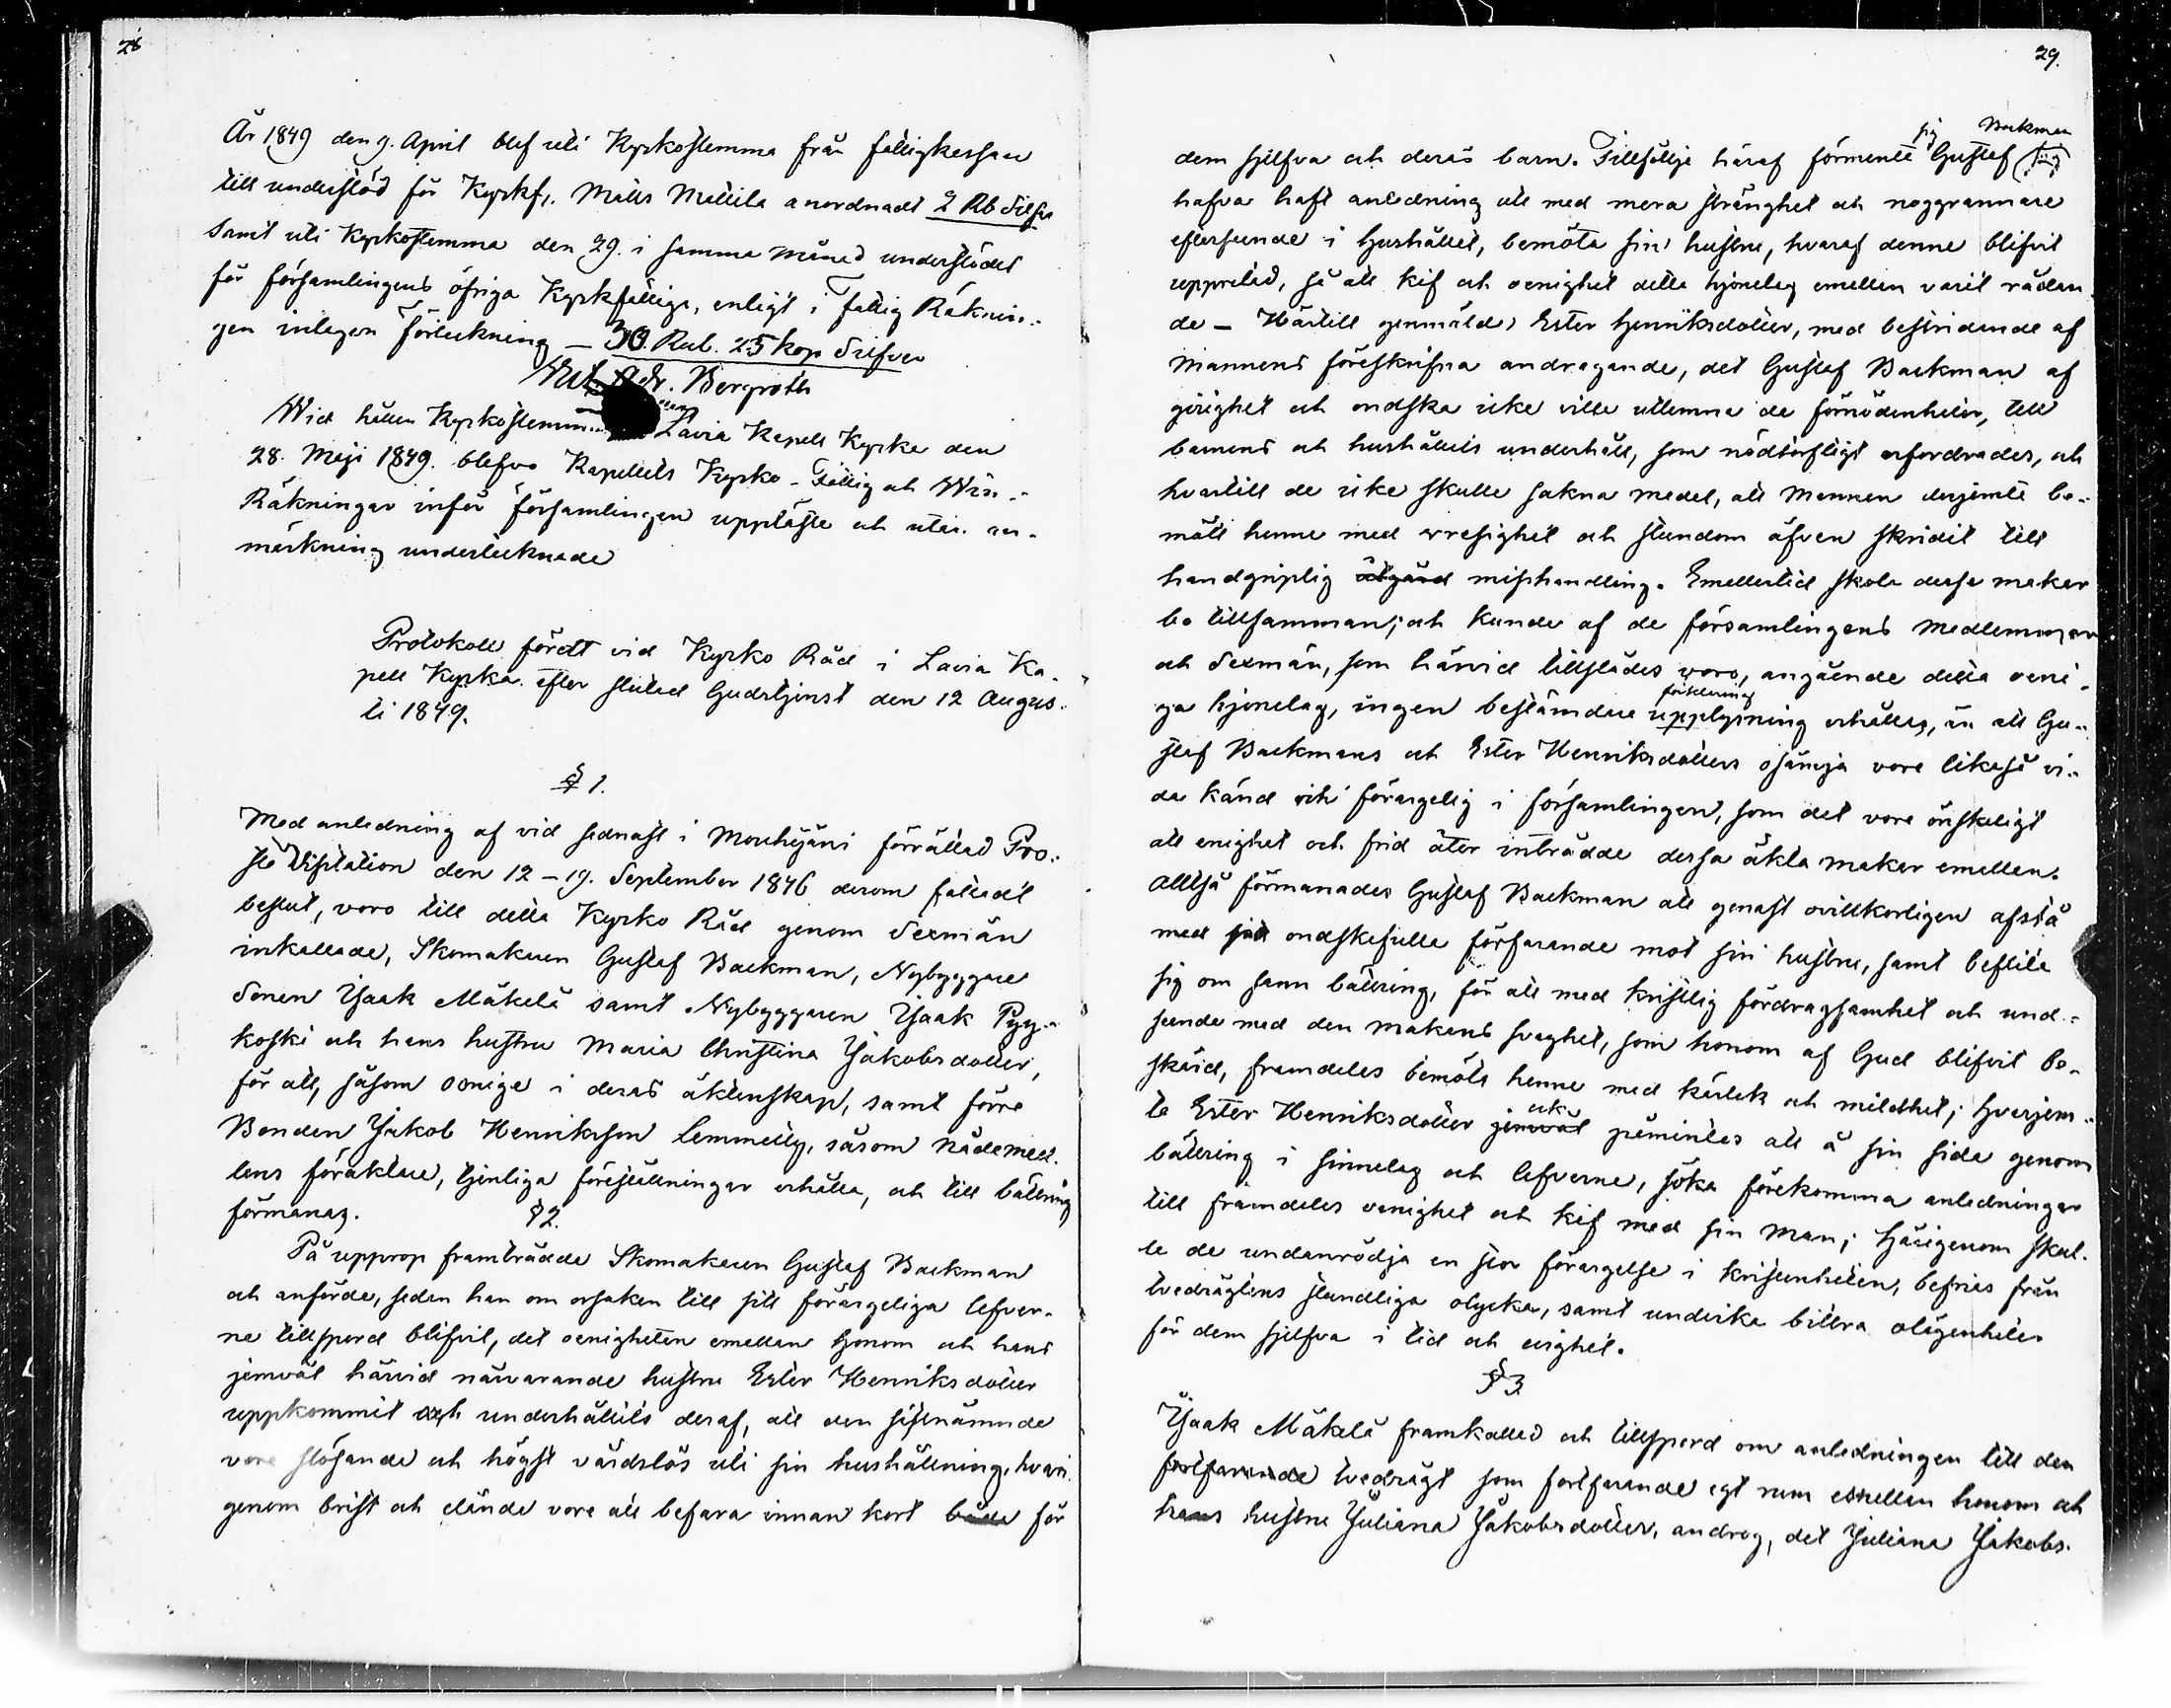 28
År 1849 den 9. April blef uti Kyrkostemma från fattigkassan
till understöd för Kyrkf. Matts Mattila anordnadt 2 Rb Silfver
samt uti Kyrkostemma den 29. i samma månad understödet
för församlingens öfriga Kyrkfattiga, enligt i Fattig Räknin-
gen intagen förteckning — 30. Rub. 25 kop Silfver
Adr. Bergroth
Wid hållen Kyrkostemma Lavia Kapell Kyrka den
28. Maji 1849. blefvo Kapellets Kyrko- Fattig och Win-
Räkningar inför församlingen uppläste och utan an-
märkning undertecknade
Protokoll fördt vid Kyrko Råd i Lavia Ka-
pell Kyrka efter slutad Gudstjenst den 12 Augus-
ti 1849.
§ 1.
Med anledning af vid sednast i Mouhijärvi förrättad Pro-
ste Visitation den 12–19. September 1846 derom fattadt
beslut, voro till detta Kyrko Råd genom Sexmän
inkallade, Skomakaren Gustaf Backman, Nybyggare
Sonen Isaak Mäkelä samt Nybyggaren Isaak Pyy-
koski och hans hustru Maria Christina Jakobsdotter,
för att, såsom oenige i deras äktenskap, samt förre
Bonden Jakob Henriksson Lemmetty, såsom Nådemed-
lens föraktare, tjenliga föreställningar erhålla, och till bättring
förmanas.
§ 2.
På upprop framträdde Skomakaren Gustaf Backman
och anförde, sedan han om orsaken till sitt förargeliga lefver-
ne tillspord blifvit, det oenigheten emellan honom och hans
jemväl härvid närvarande hustru Ester Henriksdotter
uppkommit och underhållits deraf, att den sistnämnde
vore slösande och högst vårdslös uti sin hushållning, hvari-
genom brist och elände vore att befara innan kort både för
29.
sig Backman
dem sjelfva och deras barn. Tillfölje häraf förmente Gustaf
hafva haft anledning att med mera stränghet och noggrannare
efterseende i hushållet, bemöta sin hustru, hvaraf denne blifvit
uppretad, så att kif och oenighet detta hjonelag emellan varit rådan-
de — Härtill genmälde Ester Henriksdotter, med bestridande af
Mannens föreskrifna andragande, det Gustaf Backman af
girighet och ondska icke ville utlemna de förnödenheter, till
barnens och hushållets underhåll, som nödtorftigt erfordrades, och
hvartill de icke skulle sakna medel, att Mannen derjemte be-
mött henne med vresighet och stundom äfven skridit till
handgriplig åtgärd misshandling. Emellertid skola dessa makar
bo tillsamman; och kunde af de församlingens Medlemmar
och Sexmän, som härvid tillstädes voro, angående detta oeni-
förklaring
ga hjonelag, ingen bestämdare upplysning erhållas, än att Gu-
staf Backmans och Ester Henriksdotters osämja vore likaså vi-
da känd och förargelig i församlingen, som det vore önskeligt
att enighet och frid åter inträdde dessa äkta makar emellan.
Alltså förmanades Gustaf Backman att genast ovillkorligen afstå
med sitt ondskefulla förfarande mot sin hustru, samt beflita
sig om sann bättring, för att med kristlig fördragsamhet och und-
seende med den makans svaghet, som honom af Gud blifvit be-
skärd, framdeles bemöta henne med kärlek och mildhet; hvarjem-
ock
te Ester Henriksdotter jemväl påmintes att å sin sida genom
bättring i sinnelag och lefverne, söka förekomma anledningar
till framdeles oenighet och kif med sin Man; härigenom skul-
le de undanrödja en stor förargelse i kristenheten, befrias från
tvedrägtens stundliga olycka, samt undvika bittra olägenheter
för dem sjelfva i tid och evighet.
§ 3.
Isaak Mäkelä framkallad och tillspord om anledningen till den
fortfarande tvedrägt som fortfarande egt rum emellan honom och
hans hustru Juliana Jakobsdotter, androg, det Juliana Jakobs-